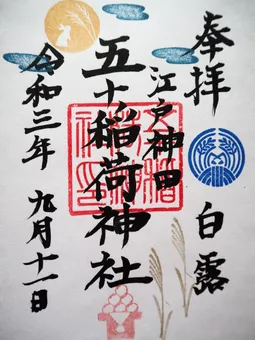 奉拝
白露
江戸神田
五十稲荷神社
令和三年 九月十一日